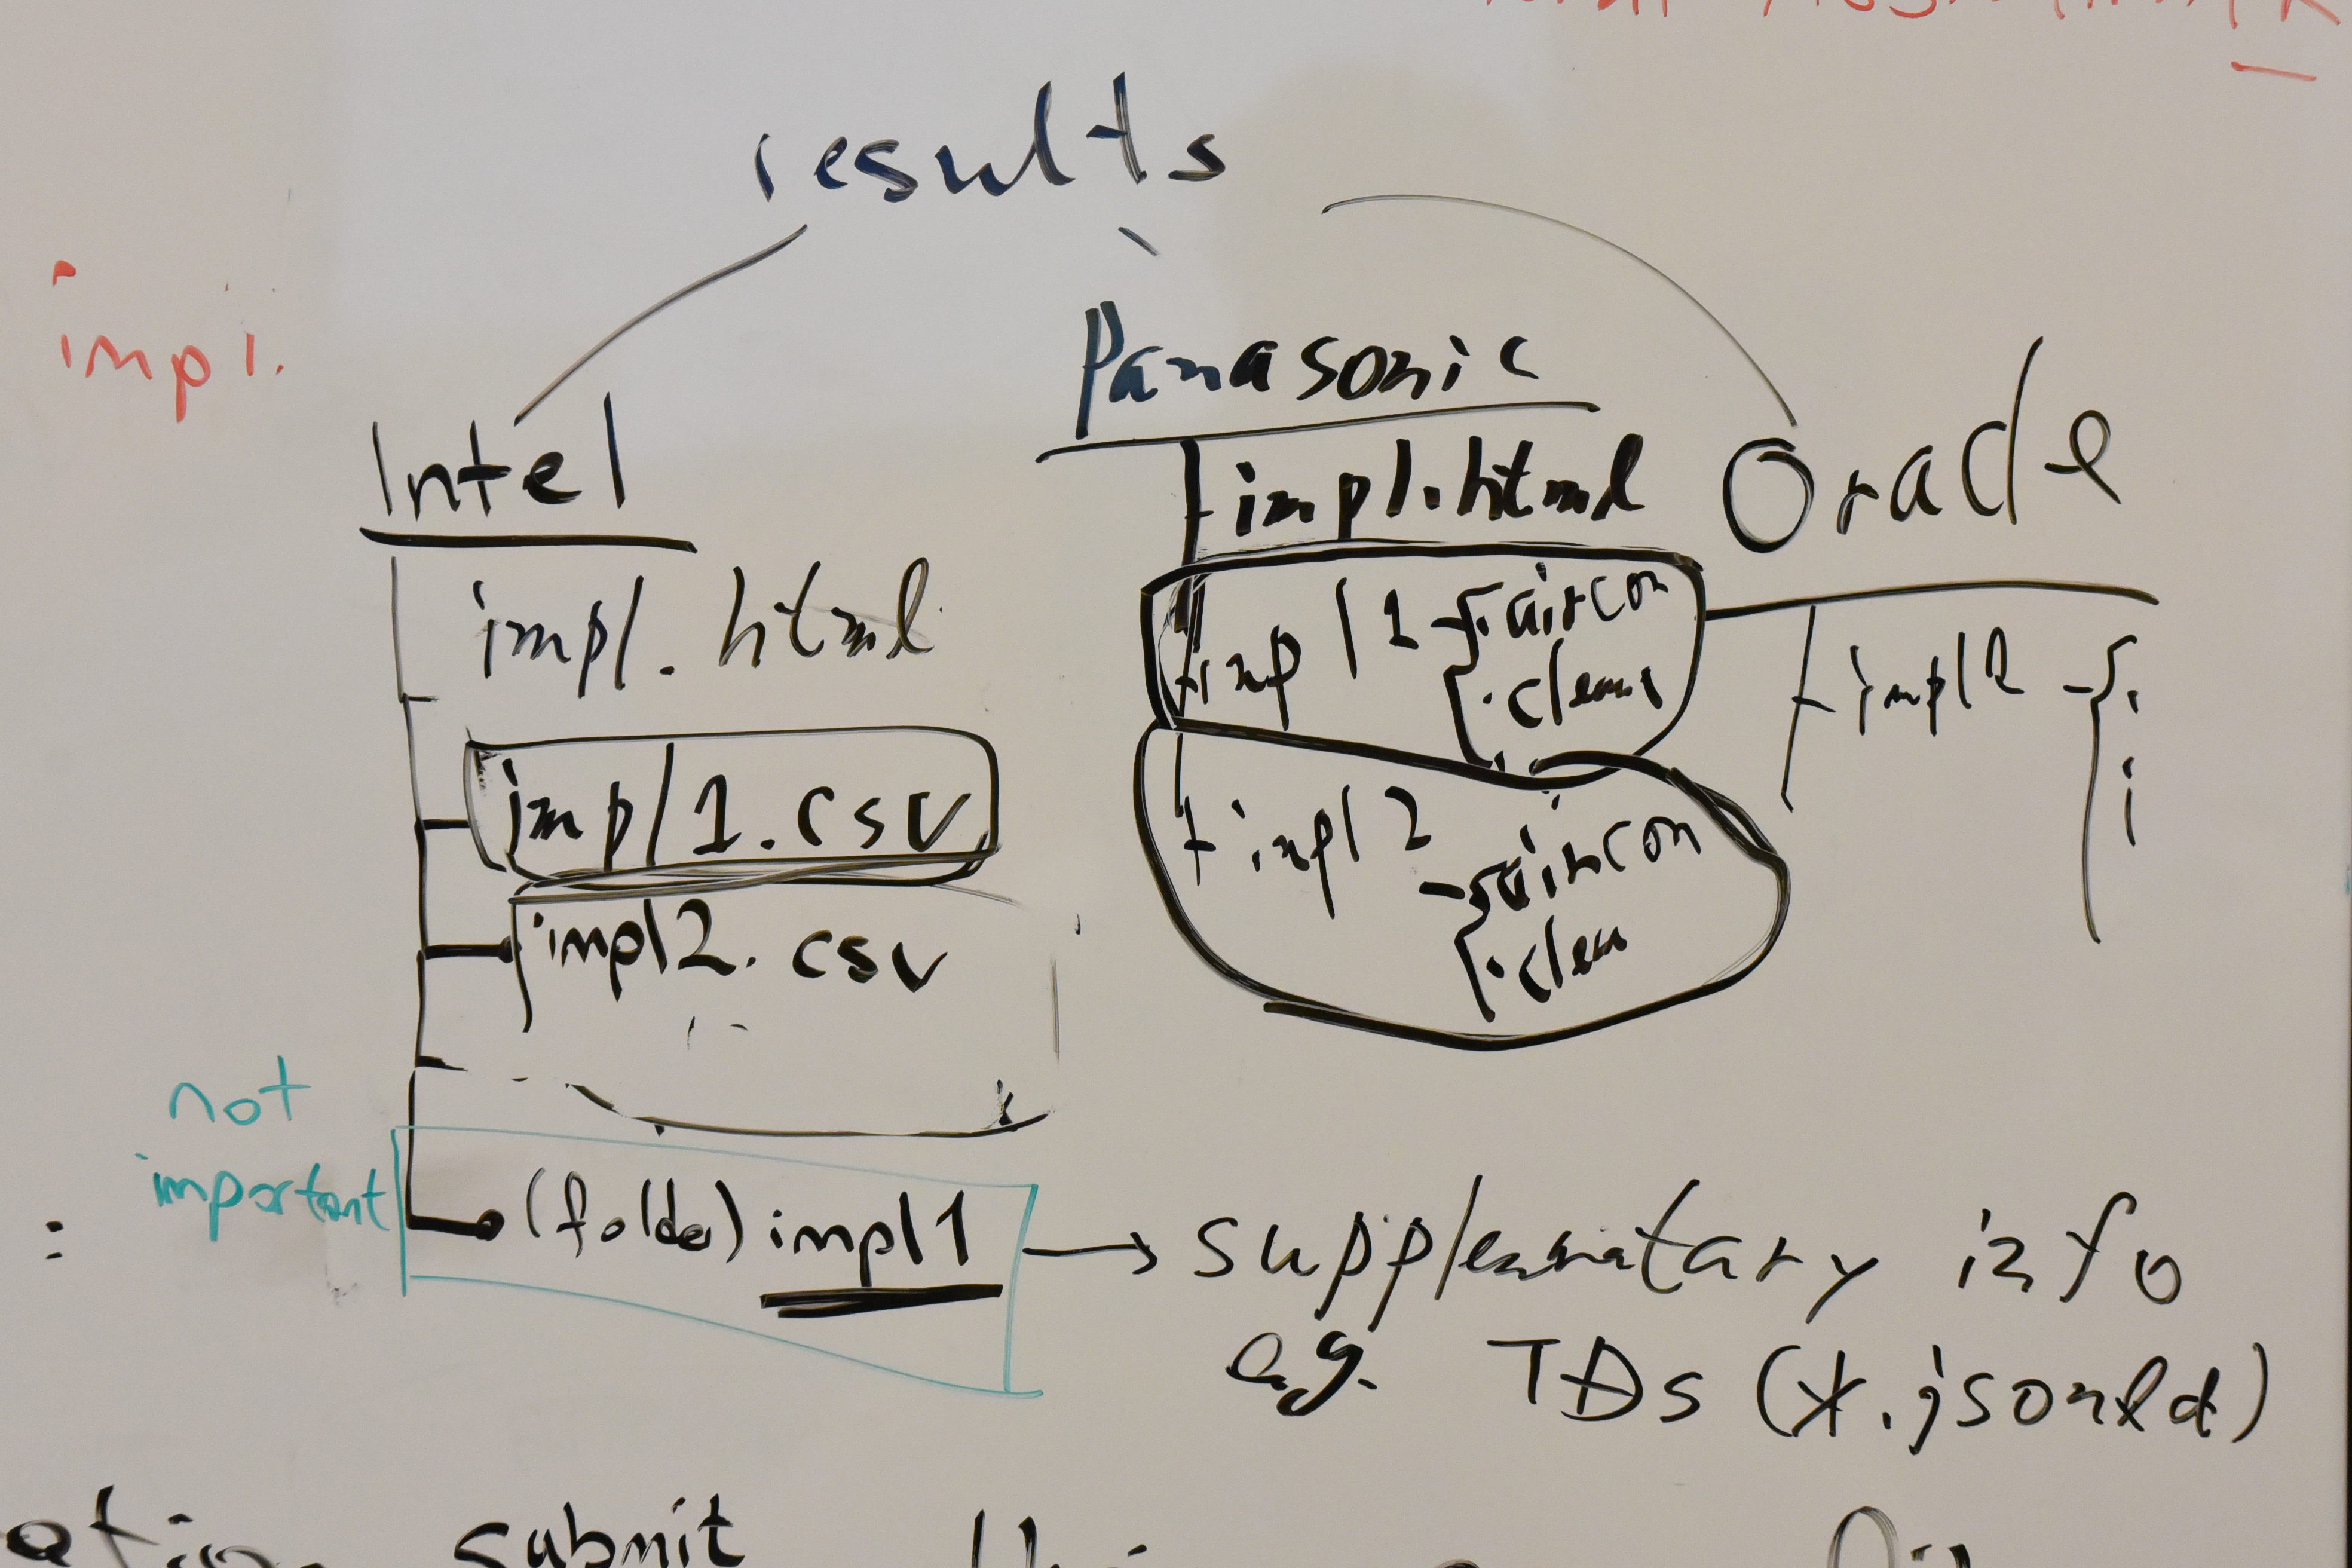 results
impl.
Panasonic
Intel
Oracle
impl.html
impl.html
impl1
aircon
impl2
impl1.csv
impl2
aircon
impl2.csv
not
important
(folder) impl1
info
e.g. TDs (*.jsonld)
submit